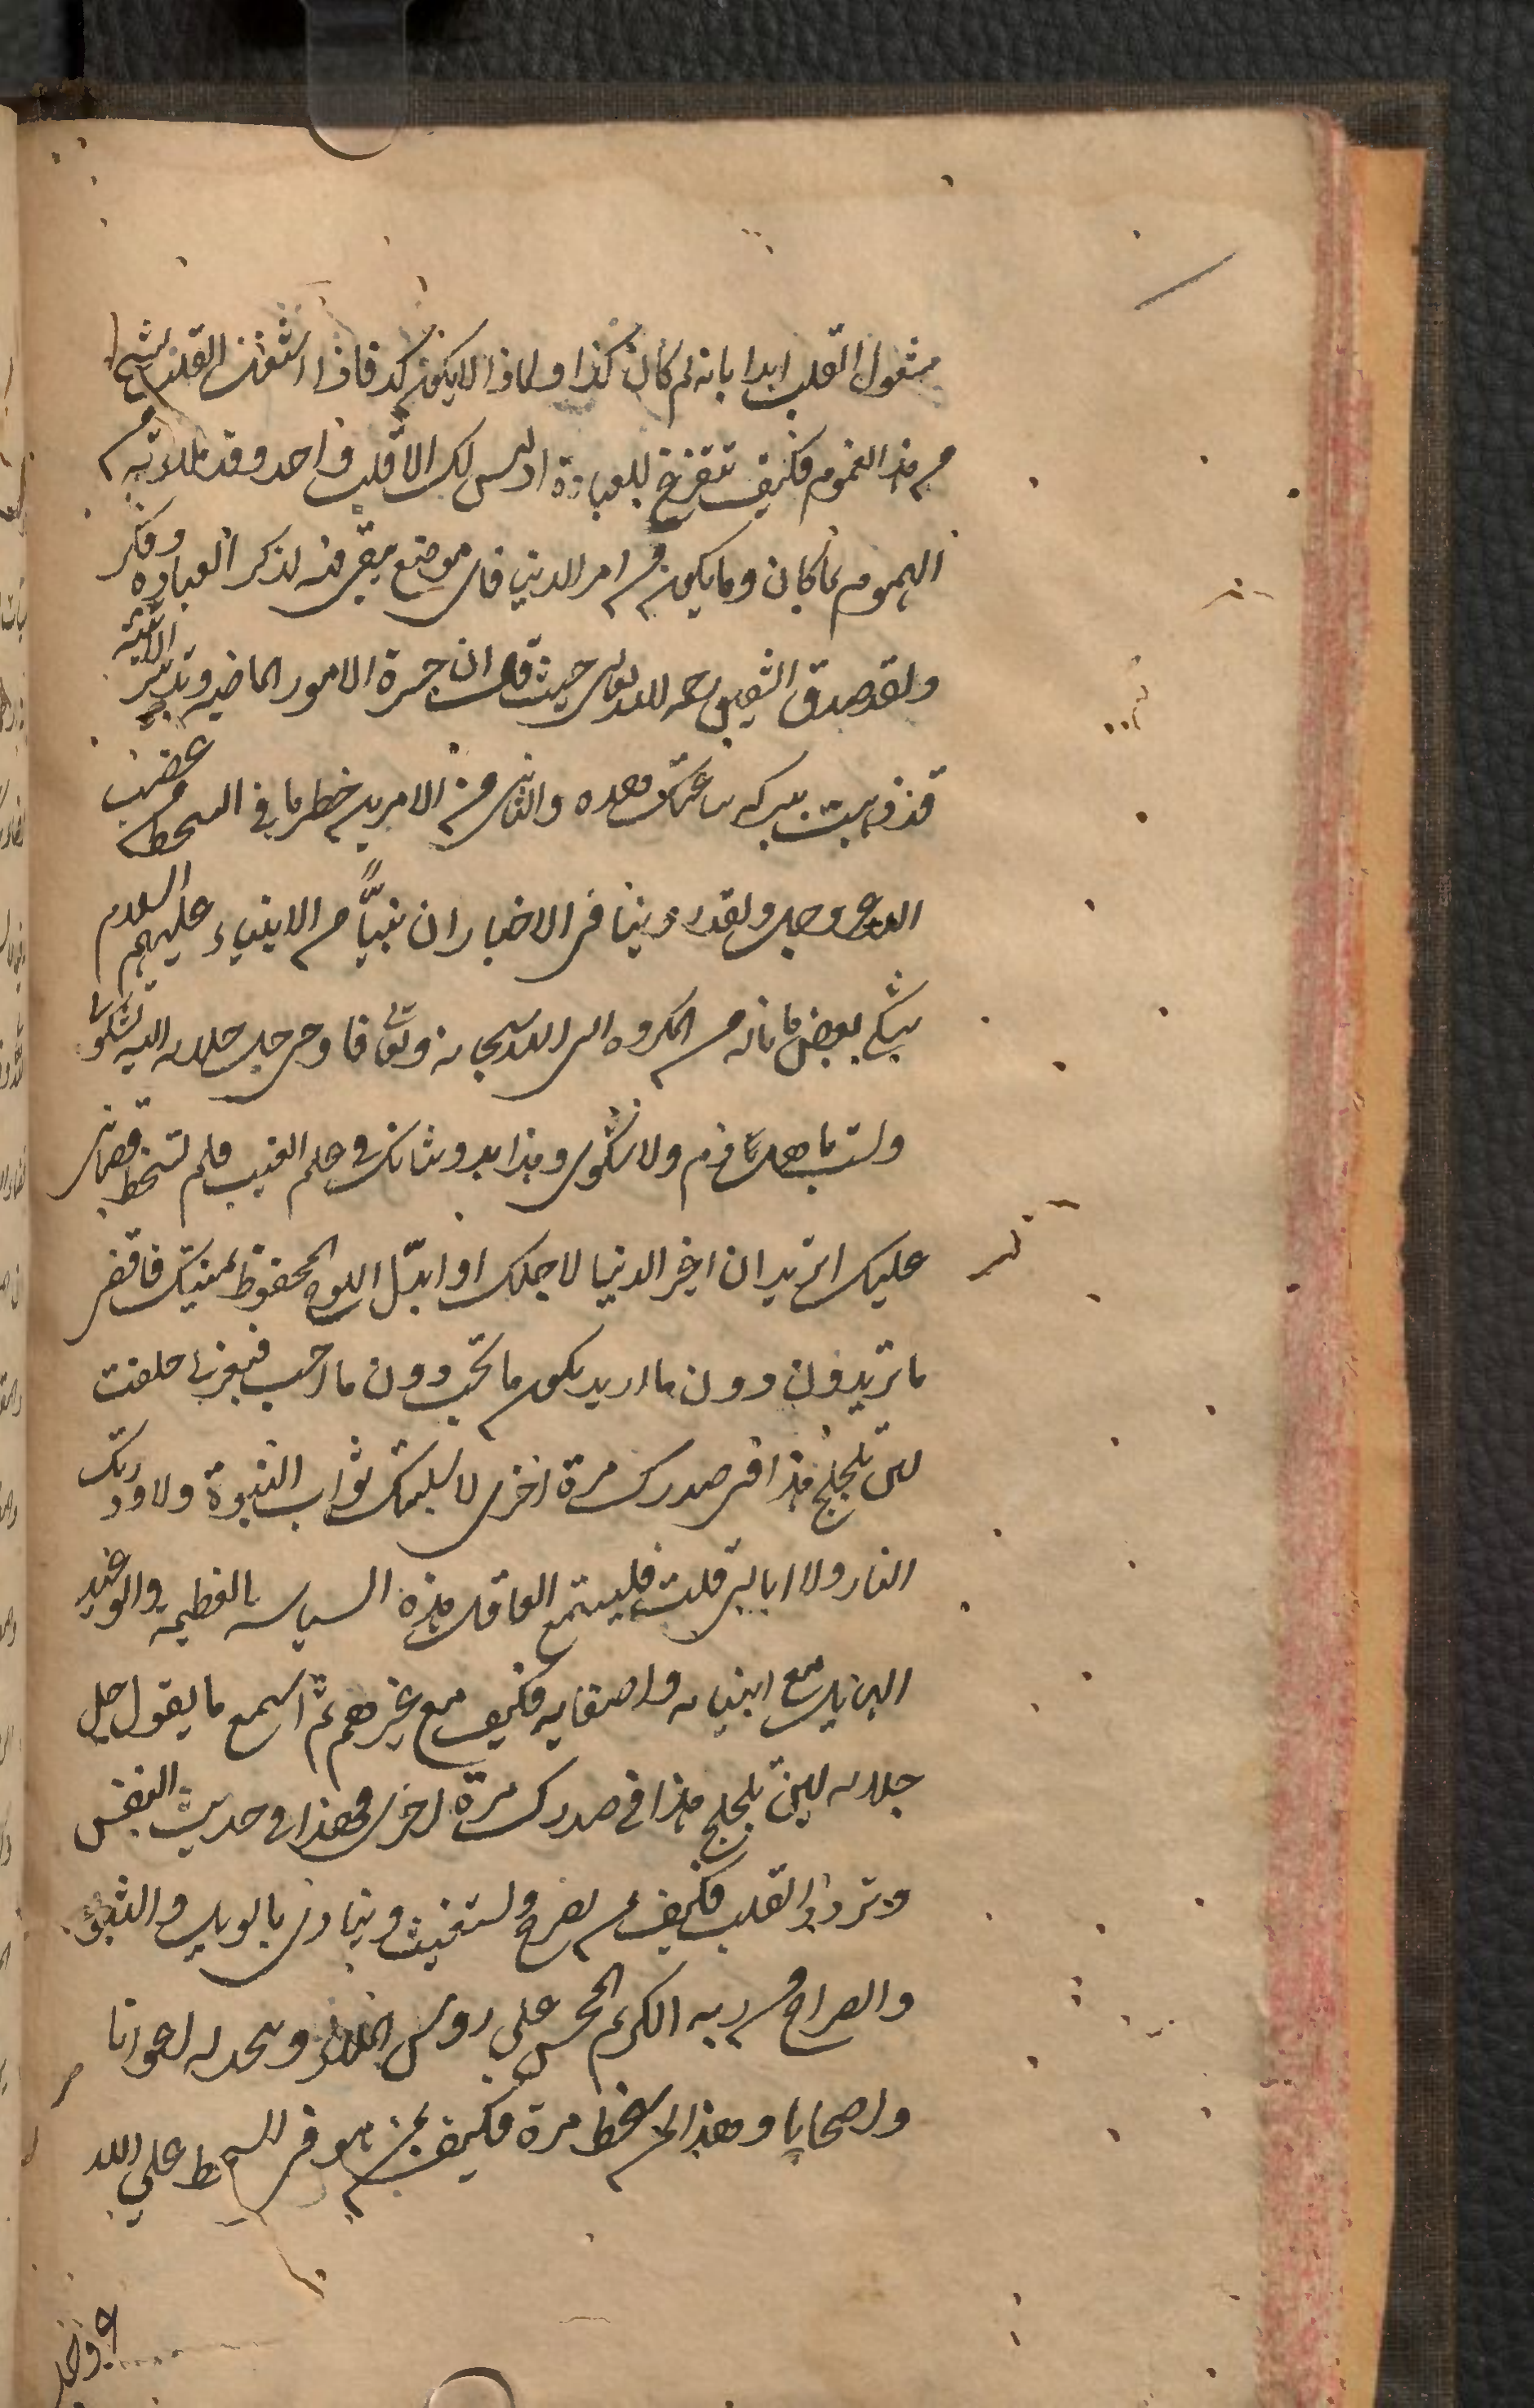 مشغول القلب ابدا بانه لم كان كذا ولماذا لا يكون كذ فاذا اشتغلت القلب بشئ
من هذا الغموم فكيف تتفرغ للعبادة اذ ليس لك الا قلب واحد وقد ملأته من
الهموم بما كان وما يكون من امر الدنيا فاى موضع يبقى منه لذكر العبادة وفكر
ولقد صدق الشقيق رحمه الله تعالى حيث قال ان حسرة الامور الماضيه وتدبير الآتية
قد ذهبت ببركه ساعتك هذه والثانى من الامرين خطر ما فى السخط من غضب
الله عز وجل ولقد روينا فى الاخبار ان نبيًّا من الانبياء عليهم السلام
شكى بعض ما ناله من المكروه الى الله سبحانه وتعالى فاوحى جل جلاله اليه تشكونى
ولست باهل ذم ولا شكوى وهذا بدو شانك فى علم الغيب فلم تسخط قضائى
عليك اتريد ان اغير الدنيا لاجلك او ابدّل اللوح المحفوظ بسببك فاقضى
ما تريد دون ما اريد ويكون ما تحب دون ما احب فبعزتى حلفت
لئن تلجلج هذا فى صدرك مرة اخرى لاسلبنك ثواب النبوة ولاوردنك
النار ولا ابالى قلت فليستمع العاقل هذه السياسه العظيمه والوعيد
الهائل مع انبيائه واصفيائه فكيف مع غيرهم ثم اسمع ما يقول جل
جلاله لئن تلجلج هذا فى صدرك مرة اخرى فهذا فى حديث النفس
وتردد القلب فكيف من يصرخ ويستغيث وينادى بالويل والثبور
والصراخ من ربه الكريم المحسن على رؤس الملأ ويتخذ له اعوانا
واصحابا وهذا لمن سخط مرة فكيف بمن هو فى السخط على الله
عز وجل